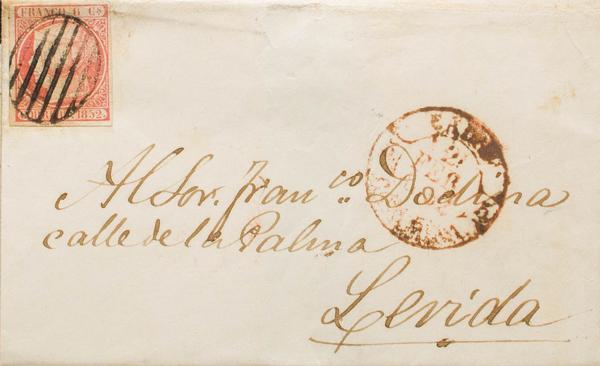 FRANCO 6 Cs
1852
Al Sor. Franco. Dodona
calle de la Palma
Lerida